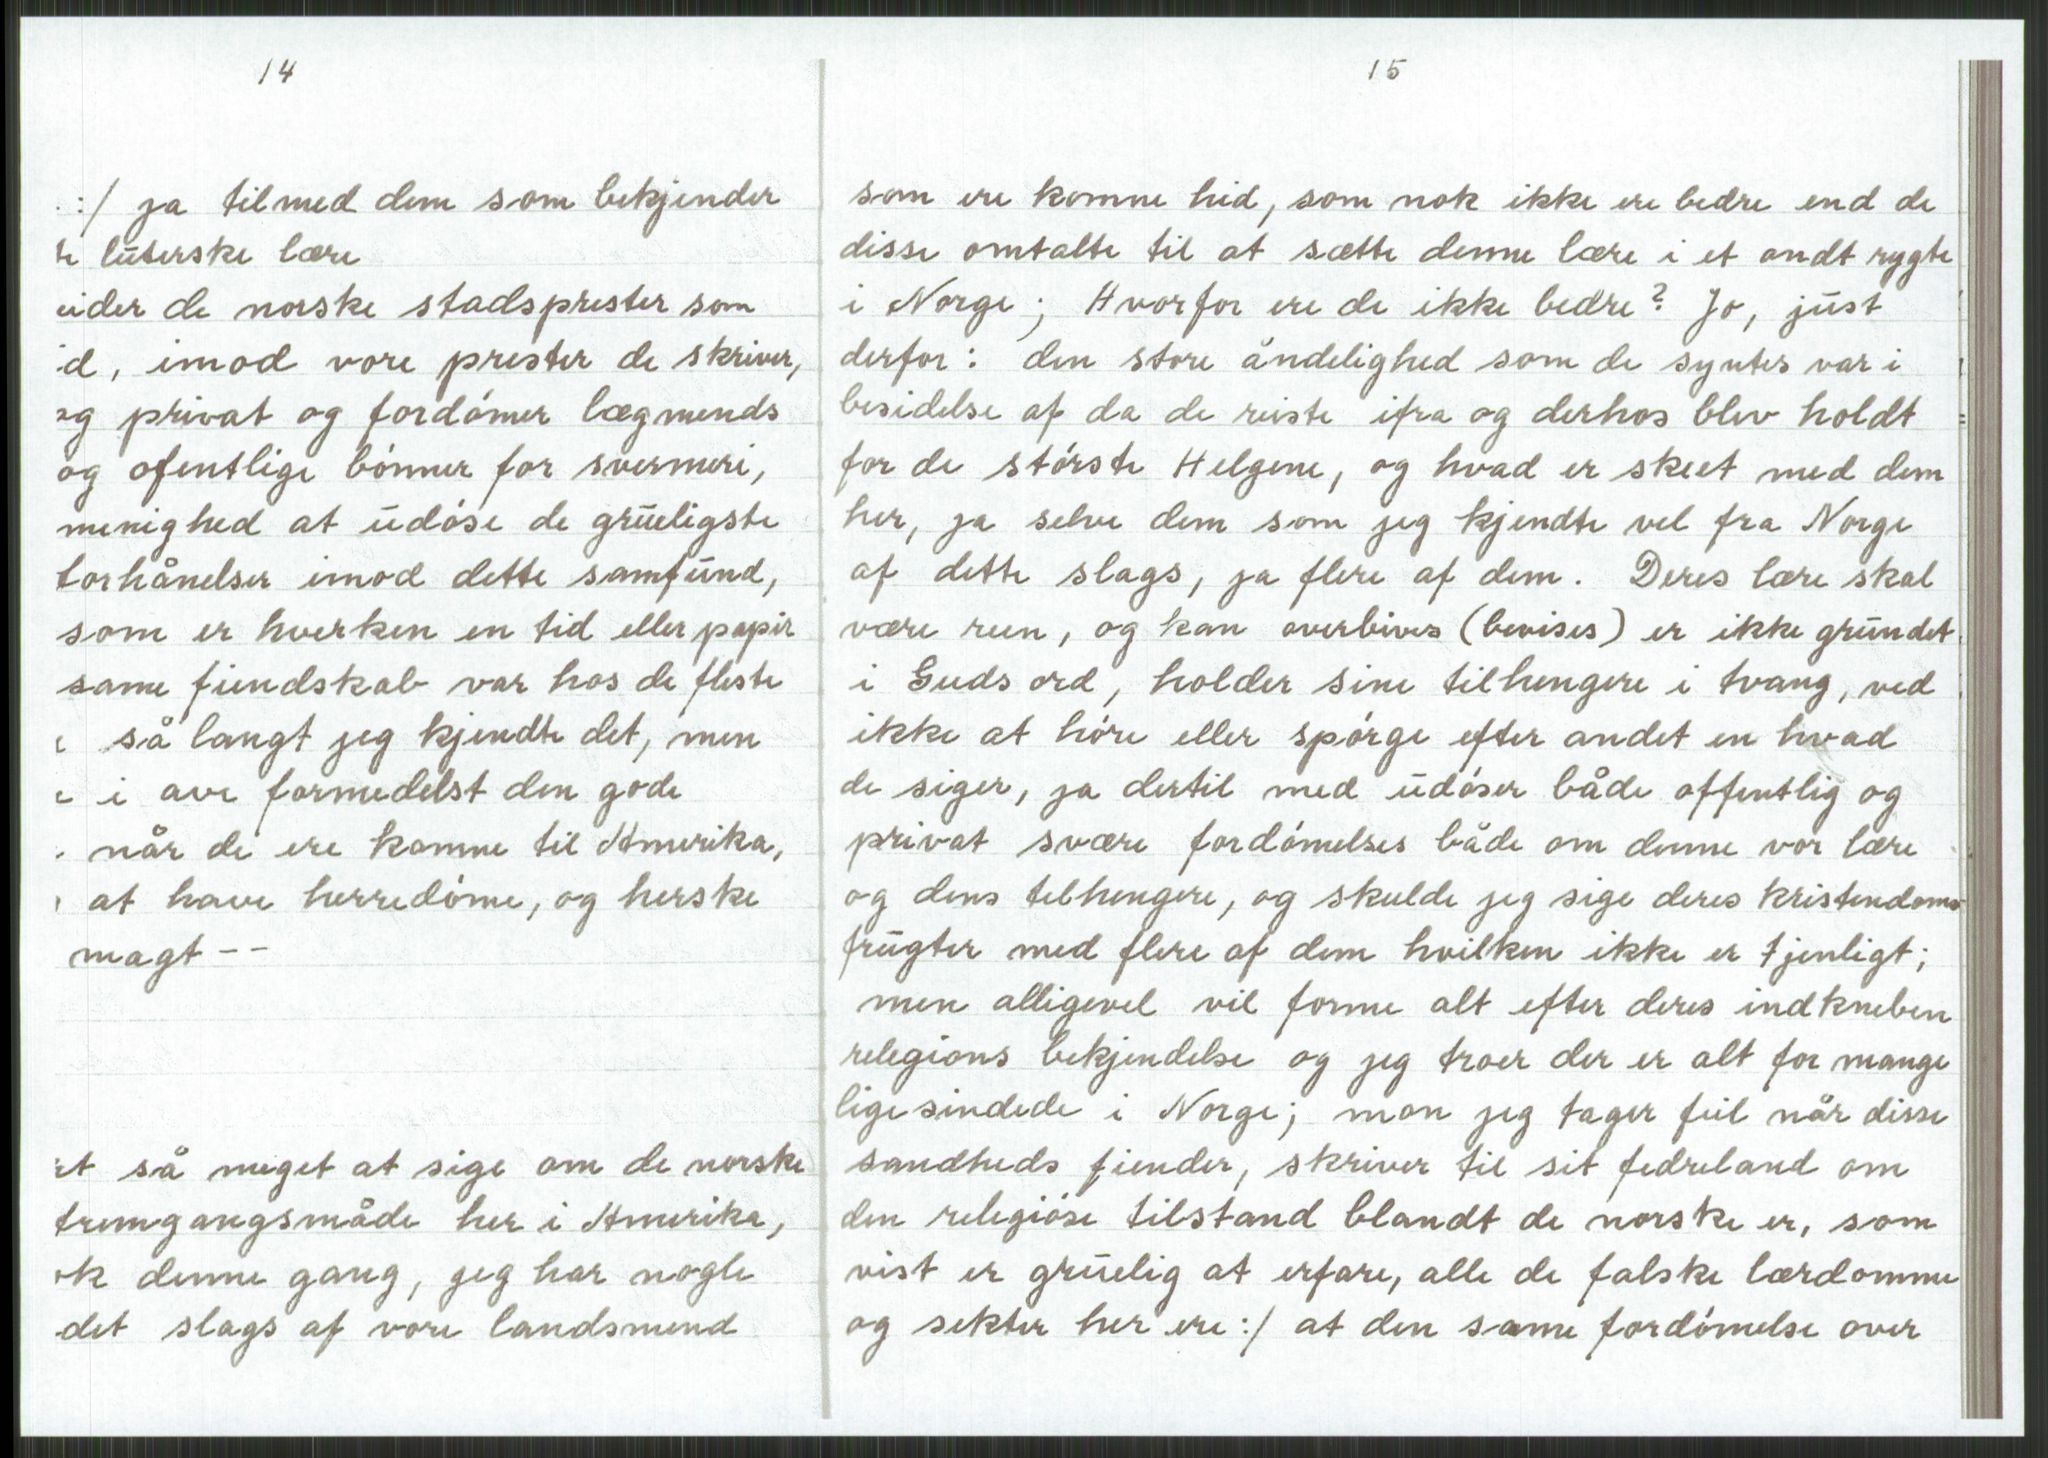 14
:/ ja tilmed dem som bekjender
lúterske lære
eider de norske stadsprester som
d, imod vore prester de skriver,
og privat og fordómer lægmends
og ofentlige bónner for svermeri,
menighed at údóse de grúeligste
forhånelser imod dette samfúnd,
som er hverken en tid eller papir
same fiendskab var hos de fleste
så langt jeg kjendte det, men
i ave formedelst den gode
når de ere komne til Amerika,
at have herredóme, og herske
magt --
et så meget at sige om de norske
fremgangsmåde her i Amerika,
ok denne gang, jeg har nogle
det slags af vore landsmend
15
som ere komne hid, som nok ikke ere bedre end de
disse omtalte til at sætte denne lære i et ondt rygte
i Norge; Hvorfor ere de ikke bedre? Jo, júst
derfor: den store åndelighed som de syntes var i
besidelse af da de reiste ifra og derhos blev holdt
for de stórste Helgene, og hvad er skeet med dem
her, ja selve dem som jeg kjendte vel fra Norge
af dette slags, ja flere af dem. Deres lære skal
være reen, og kan overbives (bevises) er ikke grúndet
i Guds ord, holder sine tilhengere i tvang, ved
ikke at hóre eller spórge efter andet en hvad
de siger, ja dertil med údóser både offentlig og
privat svære fordómelses både om denne vor lære
og dens telhengere, og skulde jeg sige deres kristendoms
frúgter med flere af dem hvilken ikke er tjenligt;
men alligevel vil forme alt efter deres indkneben
relegions bekjendelse og jeg troer der er alt for mange
ligesindede i Norge; mon jeg tager feil når disse
sandheds fiender, skriver til sit fedreland om
den relegióse tilstand blandt de norske er, som
vist er grúelig at erfare, alle de falske lærdomme
og sekter her ere :/ at den same fordómelse over